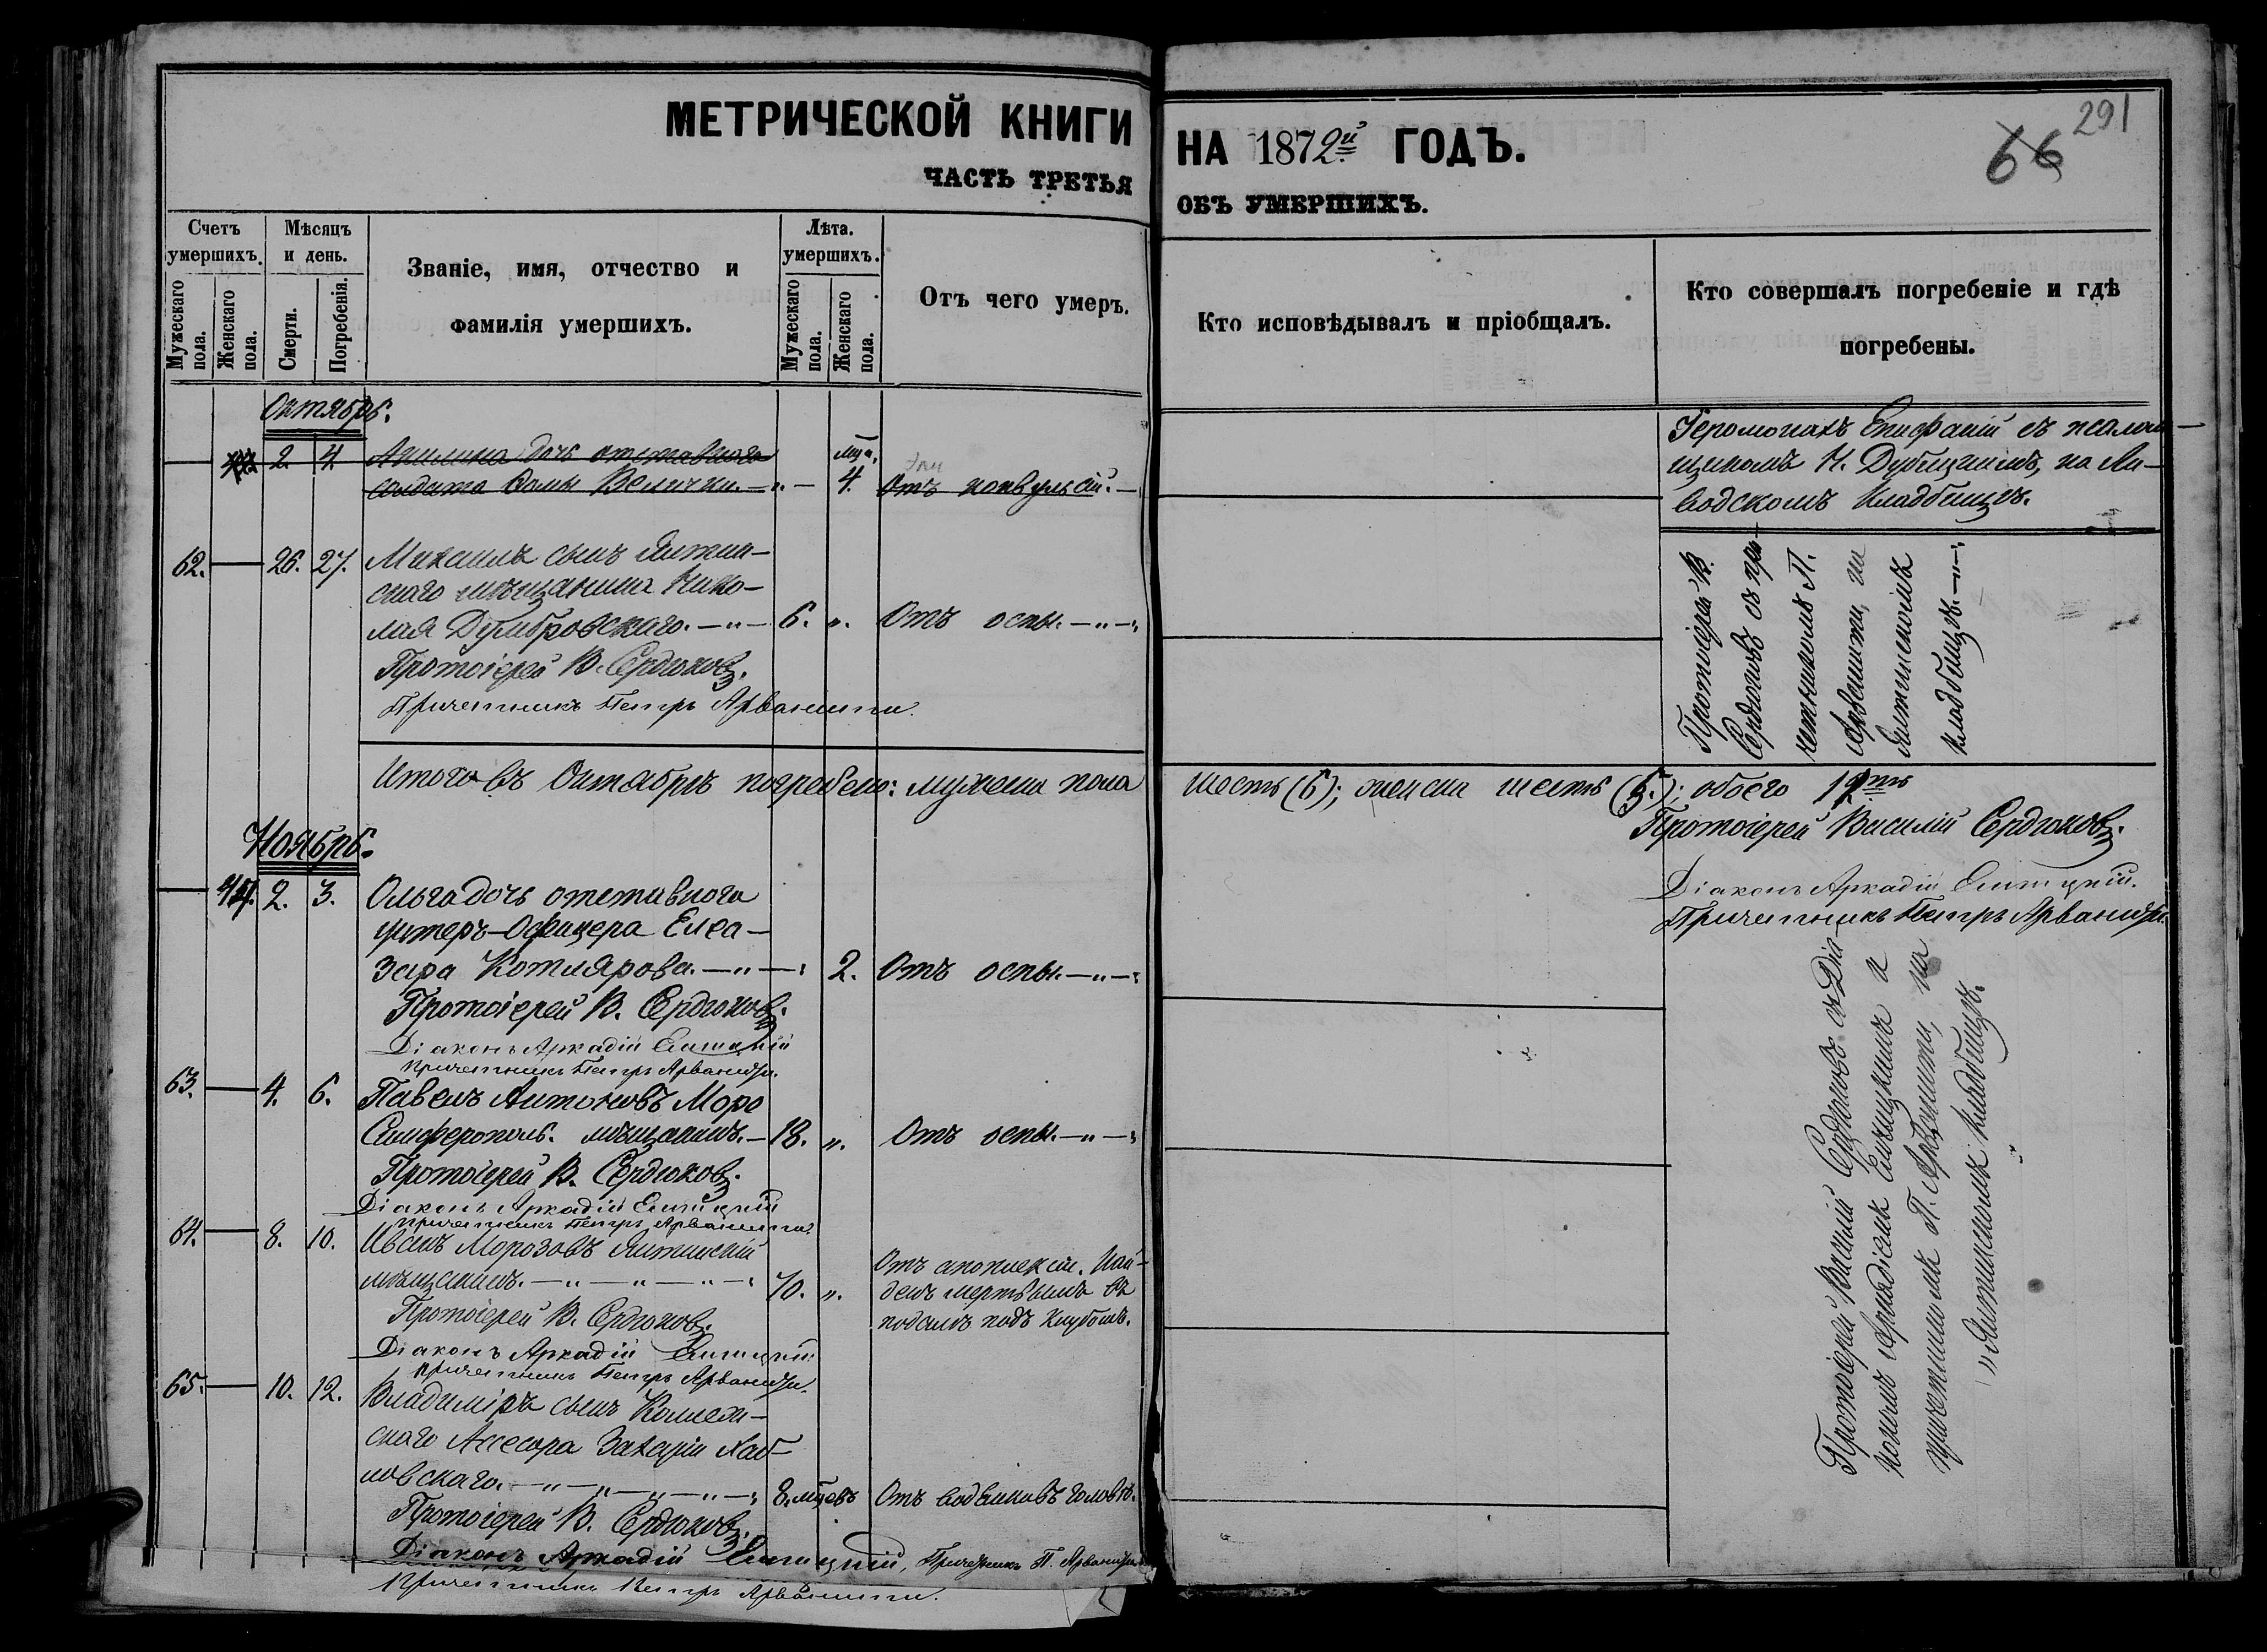 МЕТРИЧЕСКОЙ КНИГИ
ЧАСТЬ ТРЕТЬЯ
Счетъ умершихъ.
Мужескаго пола.
Женскаго пола.
Мѣсяцъ и день.
Смерти.
Погребенія.
Званіе, имя, отчество и
фамилія умершихъ.
Лѣта. умершихъ.
Мужескаго пола.
Женскаго пола.
Отъ чего умеръ.
Октябрь.
2. 4. Акилина дочь отставного мца.
солдата Ѳомы Велички. — „ — 4. Отъ конвульсій. —
62. — 26. 27. Михаилъ сынъ Ялтин-
скаго мѣщанина Нико-
лая Думбровскаго. — „ — 6. „. Отъ оспы. — „ —
Протоіерей В. Сердюковъ.
Причетникъ Петръ Арванити.
Итого въ Октябрѣ погребено: мужеска пола
Ноябрь.
2. 3. Ольга дочь отставного
унтеръ-Офицера Елеа-
зара Котлярова. — „ — 2. Отъ оспы. — „ —
Протоіерей В. Сердюковъ.
Діаконъ Аркадій
Причетникъ Петръ Арванити.
63. — 4. 6. Павелъ Антоновъ Моро
Симферополь. мѣщанинъ. — 18. „. Отъ оспы. — „ —
Протоіерей В. Сердюковъ.
Діаконъ Аркадій
Причетникъ Петръ Арванити.
64. — 8. 10. Иванъ Морозовъ Ялтинскій
мѣщанинъ. — „ — „ — „ — 70. „. Отъ апоплексіи. Най-
денъ мертвымъ въ
подвалѣ подъ клубомъ.
Протоіерей В. Сердюковъ.
Діаконъ Аркадій
Причетникъ Петръ Арванити.
65. — 10. 12. Владиміръ сынъ Коллеж-
скаго Ассесора Захаріи Хаб-
ловскаго. — „ — „ — „ — „ — 8. мцевъ Отъ водянки въ головѣ.
Протоіерей В. Сердюковъ.
Діаконъ Аркадій Причетникъ П. Арванити
Причетникъ Петръ Арванити.
НА 1872й ГОДЪ.
66 291
ОБЪ УМЕРШИХЪ.
Кто исповѣдывалъ и пріобщалъ.
Кто совершалъ погребеніе и гдѣ
погребены.
Іеромонахъ Епифаній съ псалом-
щикомъ Н. Дубицкимъ, на Ли-
вадскомъ Кладбищѣ.
Протоіерей В.
Сердюковъ съ при-
четникомъ П.
Арванити, на
Ялтинскомъ
кладбищѣ. — „ —
шесть (6); женска шесть (6.); обоего 12ть
Протоіерей Василій Сердюковъ.
Діаконъ Аркадій
Причетникъ Петръ Арванити.
Протоіерей Василій Сердюковъ съ Діа-
кономъ Аркадіемъ и
причетникомъ П. Арванити, на
„Ялтинскомъ кладбищѣ.